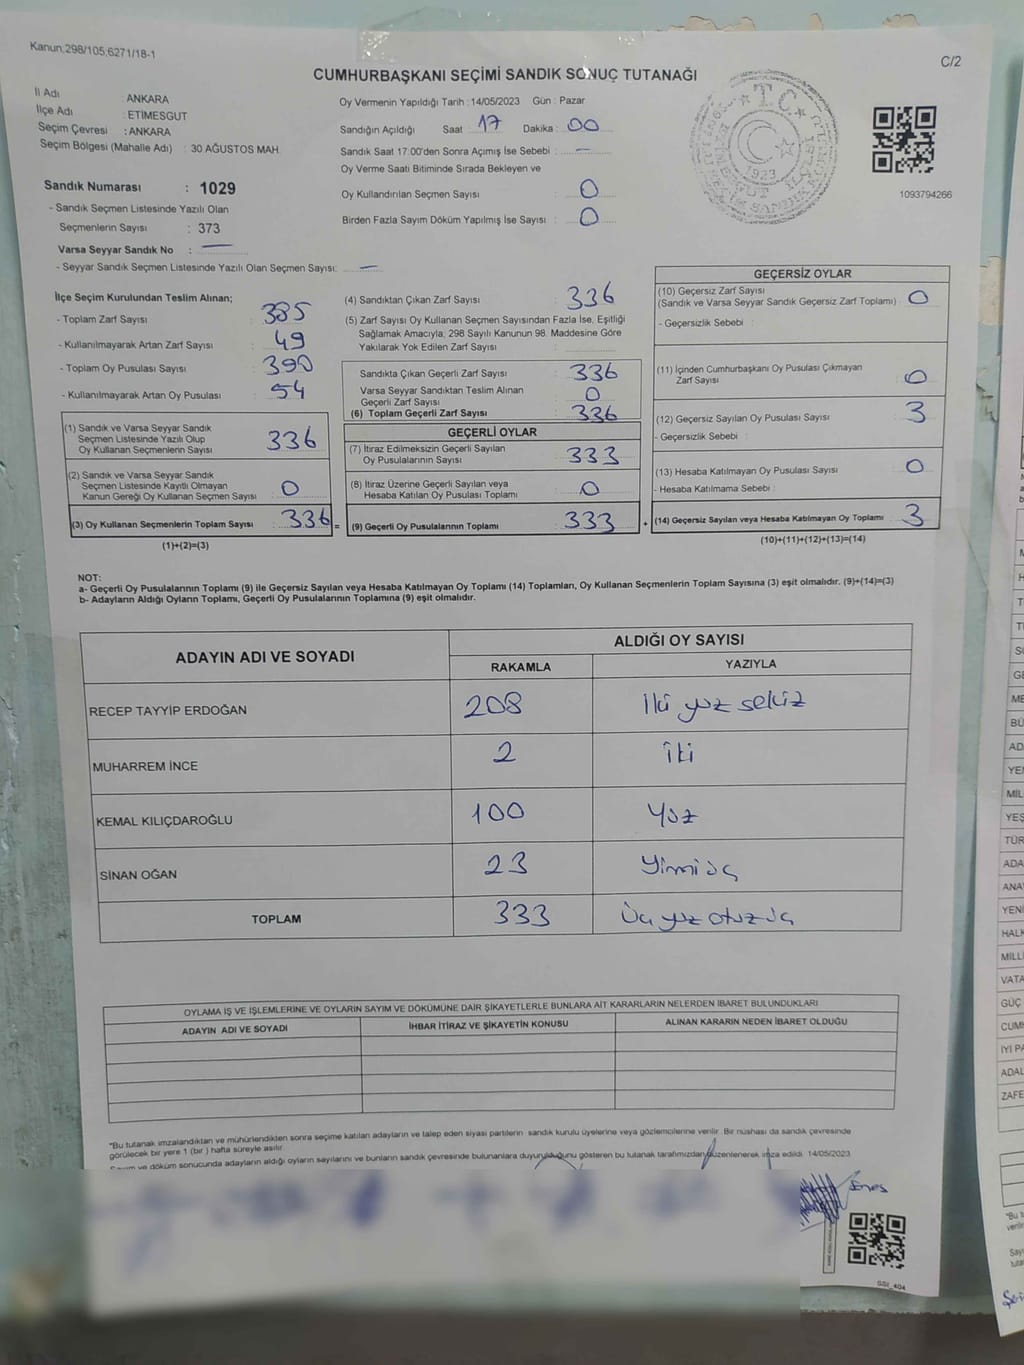 Kanun;298/105;6271/18-1
C/2
CUMHURBAŞKANI SEÇİMİ SANDIK SONUÇ TUTANAĞI
İl Adı : ANKARA
İlçe Adı : ETİMESGUT
Seçim Çevresi : ANKARA
Seçim Bölgesi (Mahalle Adı) : 30 AĞUSTOS MAH.
Sandık Numarası : 1029
- Sandık Seçmen Listesinde Yazılı Olan
Seçmenlerin Sayısı : 373
Varsa Seyyar Sandık No : —
- Seyyar Sandık Seçmen Listesinde Yazılı Olan Seçmen Sayısı: —
Oy Vermenin Yapıldığı Tarih : 14/05/2023 Gün : Pazar
Sandığın Açıldığı Saat : 17 Dakika : 00
Sandık Saat 17:00'den Sonra Açımış İse Sebebi : —
Oy Verme Saati Bitiminde Sırada Bekleyen ve
Oy Kullandırılan Seçmen Sayısı : 0
Birden Fazla Sayım Döküm Yapılmış İse Sayısı : 0
T.C.
1923
1093794266
İlçe Seçim Kurulundan Teslim Alınan;
- Toplam Zarf Sayısı : 385
- Kullanılmayarak Artan Zarf Sayısı : 49
- Toplam Oy Pusulası Sayısı : 390
- Kullanılmayarak Artan Oy Pusulası : 54
(1) Sandık ve Varsa Seyyar Sandık
Seçmen Listesinde Yazılı Olup
Oy Kullanan Seçmenlerin Sayısı : 336
(2) Sandık ve Varsa Seyyar Sandık
Seçmen Listesinde Kayıtlı Olmayan
Kanun Gereği Oy Kullanan Seçmen Sayısı : 0
(3) Oy Kullanan Seçmenlerin Toplam Sayısı : 336 =
(1)+(2)=(3)
(4) Sandıktan Çıkan Zarf Sayısı : 336
(5) Zarf Sayısı Oy Kullanan Seçmen Sayısından Fazla İse, Eşitliği
Sağlamak Amacıyla; 298 Sayılı Kanunun 98. Maddesine Göre
Yakılarak Yok Edilen Zarf Sayısı :
Sandıkta Çıkan Geçerli Zarf Sayısı : 336
Varsa Seyyar Sandıktan Teslim Alınan
Geçerli Zarf Sayısı : 0
(6) Toplam Geçerli Zarf Sayısı : 336
GEÇERLİ OYLAR
(7) İtiraz Edilmeksizin Geçerli Sayılan
Oy Pusulalarının Sayısı : 333
(8) İtiraz Üzerine Geçerli Sayılan veya
Hesaba Katılan Oy Pusulası Toplamı : 0
(9) Geçerli Oy Pusulalarının Toplamı : 333 +
GEÇERSİZ OYLAR
(10) Geçersiz Zarf Sayısı
(Sandık ve Varsa Seyyar Sandık Geçersiz Zarf Toplamı) : 0
- Geçersizlik Sebebi :
(11) İçinden Cumhurbaşkanı Oy Pusulası Çıkmayan
Zarf Sayısı : 0
(12) Geçersiz Sayılan Oy Pusulası Sayısı : 3
- Geçersizlik Sebebi :
(13) Hesaba Katılmayan Oy Pusulası Sayısı : 0
- Hesaba Katılmama Sebebi :
(14) Geçersiz Sayılan veya Hesaba Katılmayan Oy Toplamı : 3
(10)+(11)+(12)+(13)=(14)
NOT:
a- Geçerli Oy Pusulalarının Toplamı (9) ile Geçersiz Sayılan veya Hesaba Katılmayan Oy Toplamı (14) Toplamları, Oy Kullanan Seçmenlerin Toplam Sayısına (3) eşit olmalıdır. (9)+(14)=(3)
b- Adayların Aldığı Oyların Toplamı, Geçerli Oy Pusulalarının Toplamına (9) eşit olmalıdır.
ADAYIN ADI VE SOYADI ALDIĞI OY SAYISI
RAKAMLA YAZIYLA
RECEP TAYYİP ERDOĞAN 208 İki yüz sekiz
MUHARREM İNCE 2 İki
KEMAL KILIÇDAROĞLU 100 Yüz
SİNAN OĞAN 23 Yirmi üç
TOPLAM 333 Üç yüz otuz üç
OYLAMA İŞ VE İŞLEMLERİNE VE OYLARIN SAYIM VE DÖKÜMÜNE DAİR ŞİKAYETLERLE BUNLARA AİT KARARLARIN NELERDEN İBARET BULUNDUKLARI
ADAYIN ADI VE SOYADI İHBAR İTİRAZ VE ŞİKAYETİN KONUSU ALINAN KARARIN NEDEN İBARET OLDUĞU
*Bu tutanak imzalandıktan ve mühürlendikten sonra seçime katılan adayların ve talep eden siyasi partilerin sandık kurulu üyelerine veya gözlemcilerine verilir. Bir nüshası da sandık çevresinde
görülecek bir yere 1 (bir ) hafta süreyle asılır.
Sayım ve döküm sonucunda adayların aldığı oyların sayılarını ve bunların sandık çevresinde bulunanlara duyurulduğunu gösteren bu tutanak tarafımızdan düzenlenerek imza edildi. 14/05/2023
Enes
GSİ_404
HALK
MİLLİ
VATA
GÜÇ
CUMH
İYİ PA
ADAL
ZAFE